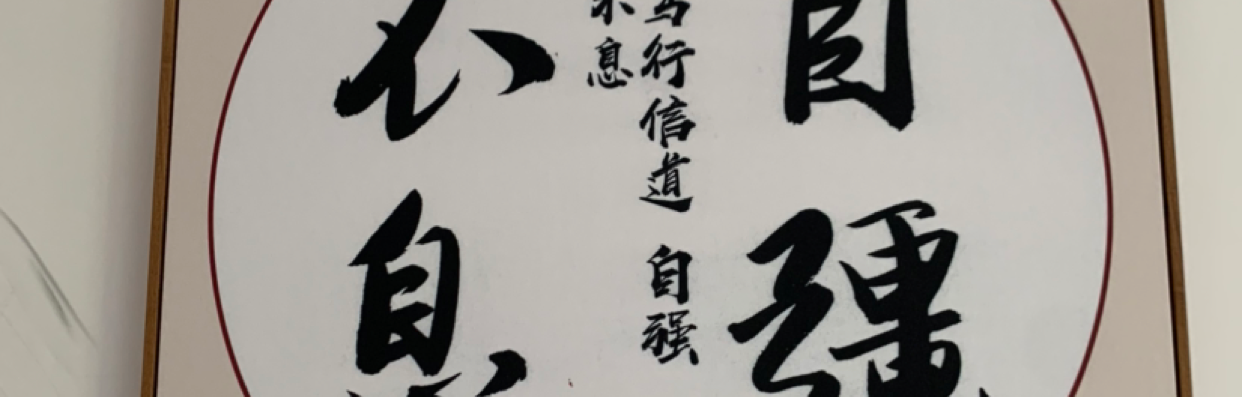 自疆
不息
笃行信道 自强
不息